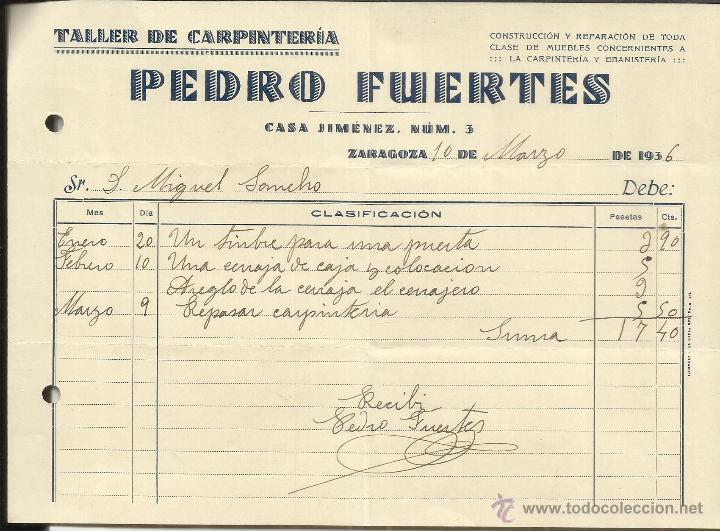 TALLER DE CARPINTERÍA
CONSTRUCCIÓN Y REPARACIÓN DE TODA
CLASE DE MUEBLES CONCERNIENTES A
::: LA CARPINTERÍA Y EBANISTERÍA :::
PEDRO FUERTES
CASA JIMÉNEZ, NÚM. 3
ZARAGOZA 10 DE Marzo DE 1936
Sr. D. Miguel Sancho Debe:
Mes Día CLASIFICACIÓN Pesetas Cts.
Enero 20 Un timbre para una puerta 2 90
Febrero 10 Una cerraja de caja y colocacion 5
Areglo de la cerraja el cerrajero
Marzo 9 Repasar carpinteria 5 50
Suma 17 40
Recibi
Pedro Fuertes
www.todocoleccion.net